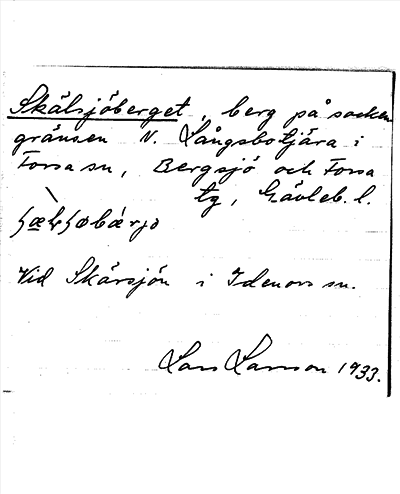 Skälsjöberget, berg på socken
gränsen N. Långsbotjära i
Forsa sn, Bergsjö och Forsa
tg, Gävleb. l.
Vid Skärsjön i Idenors sn.
Lars Larsson 1933.